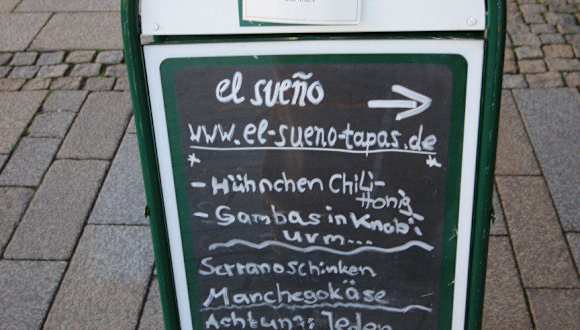 el sueño
www.el-sueno-tapas.de
* *
- Hühnchen Chili-
Honig
- Gambas in Knobi
uvm...
Serranoschinken
Manchegokäse
Achtung: Jeden